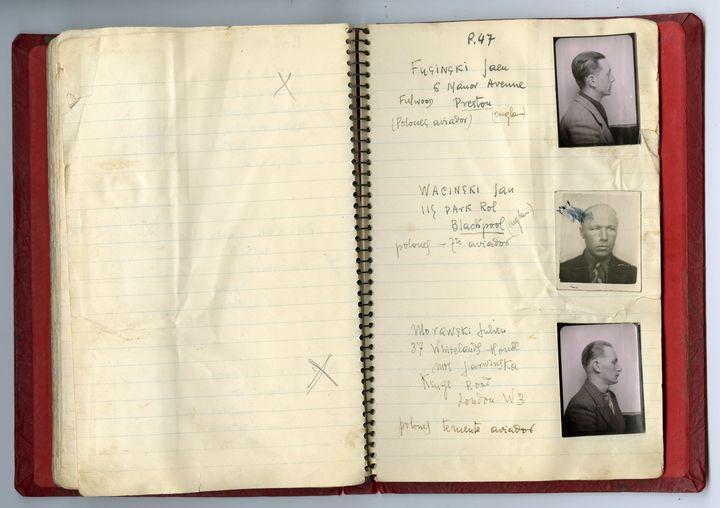 P.47
Fusinski Jaeu
6 Manor Avenue
Fulwood Preston
(Polones aviador) (engla)
WACINSKI Jan
115 PARK Rol
Blackpool (englan)
polones - 7te aviador
Morawski Julien
37 Whitelands House
mos Jarwinska
Kings Road
London W3
polones temente aviador